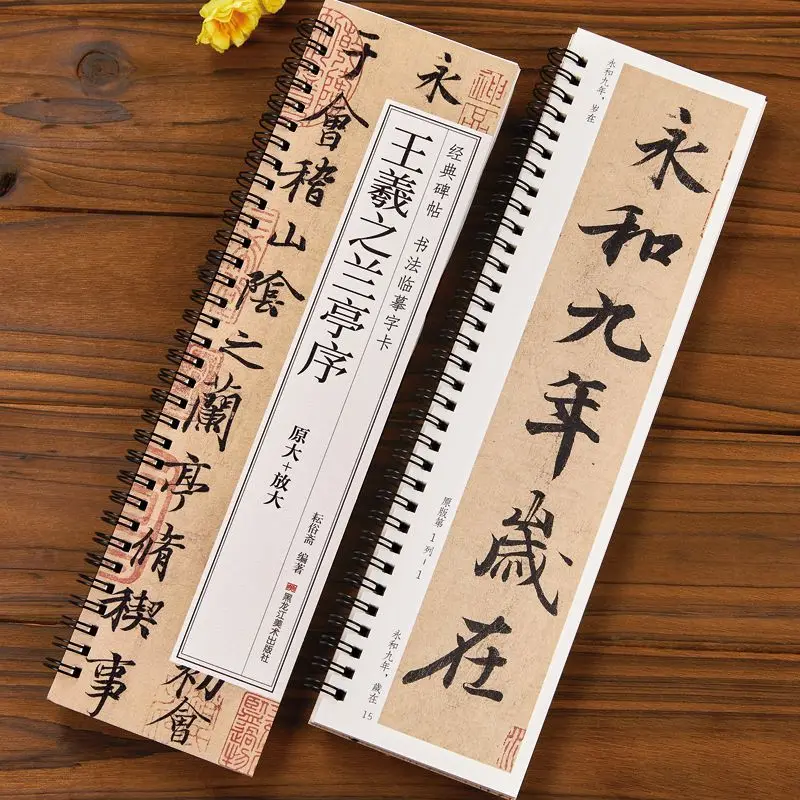 永
初會
于會稽山陰之蘭亭脩稧事
经典碑帖 书法临摹字卡
王羲之兰亭序
原大+放大
耘俗斋 编著
黑龙江美术出版社
永和九年，岁在
永和九年歲在
原版第1列-1
永和九年，歲在
15